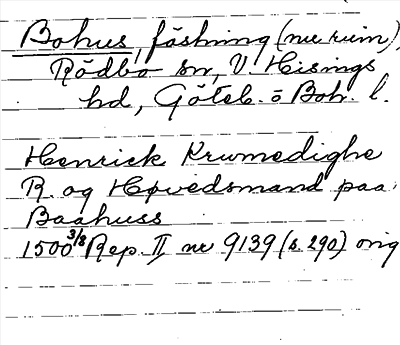 Bohus, fästning (nu ruin),
Rödbo sn, V. Hisings
hd, Göteb. o Boh. l.
Henrick Krumedighe
R. og Høvedsmand paa
Baahuss
1500 3/8 Rep. II nr 9139 (s. 290) orig